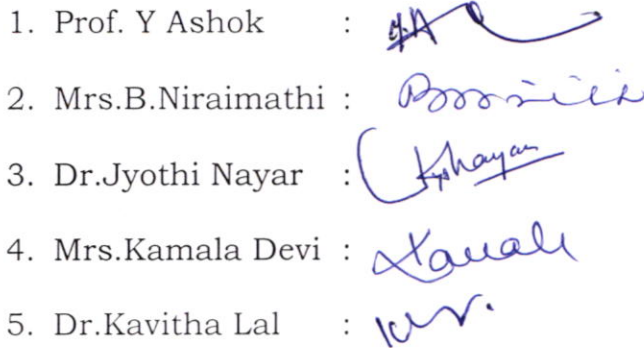 1. Prof. Y Ashok :
2. Mrs.B.Niraimathi :
3. Dr.Jyothi Nayar :
4. Mrs.Kamala Devi :
5. Dr.Kavitha Lal :